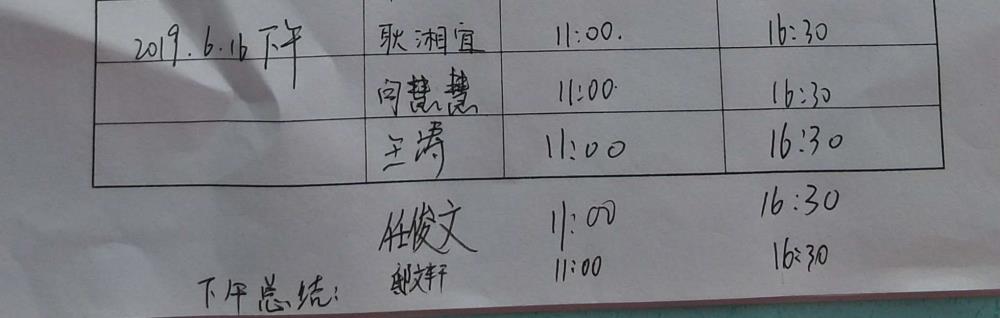 2019.6.16下午 耿湘宜 11:00. 16:30
闫慧慧 11:00 16:30
王涛 11:00 16:30
任俊文 11:00 16:30
文轩 11:00 16:30
下午总结: